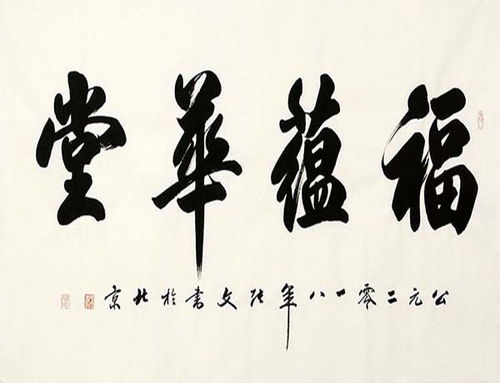 福蕴華堂
公元二零一八年张文書於北京